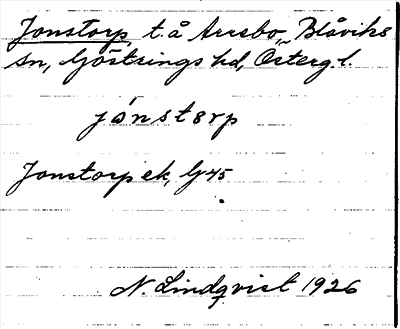 Jonstorp, t. å Arrsbo, Blåviks
sn, Göstrings hd, Österg. l.
jónstərp
Jonstorp ek, G 45
N. Lindqvist 1926